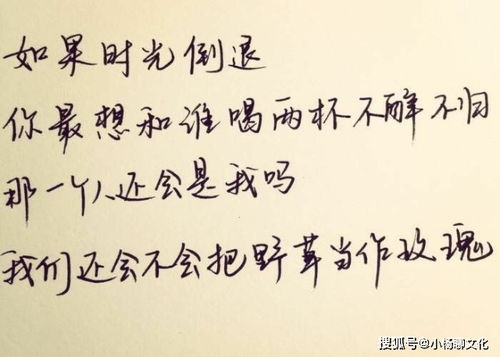 如果时光倒退
你最想和谁喝两杯不醉不归
那一个人还会是我吗
我们还会不会把野草当作玫瑰
搜狐号@小杨聊文化